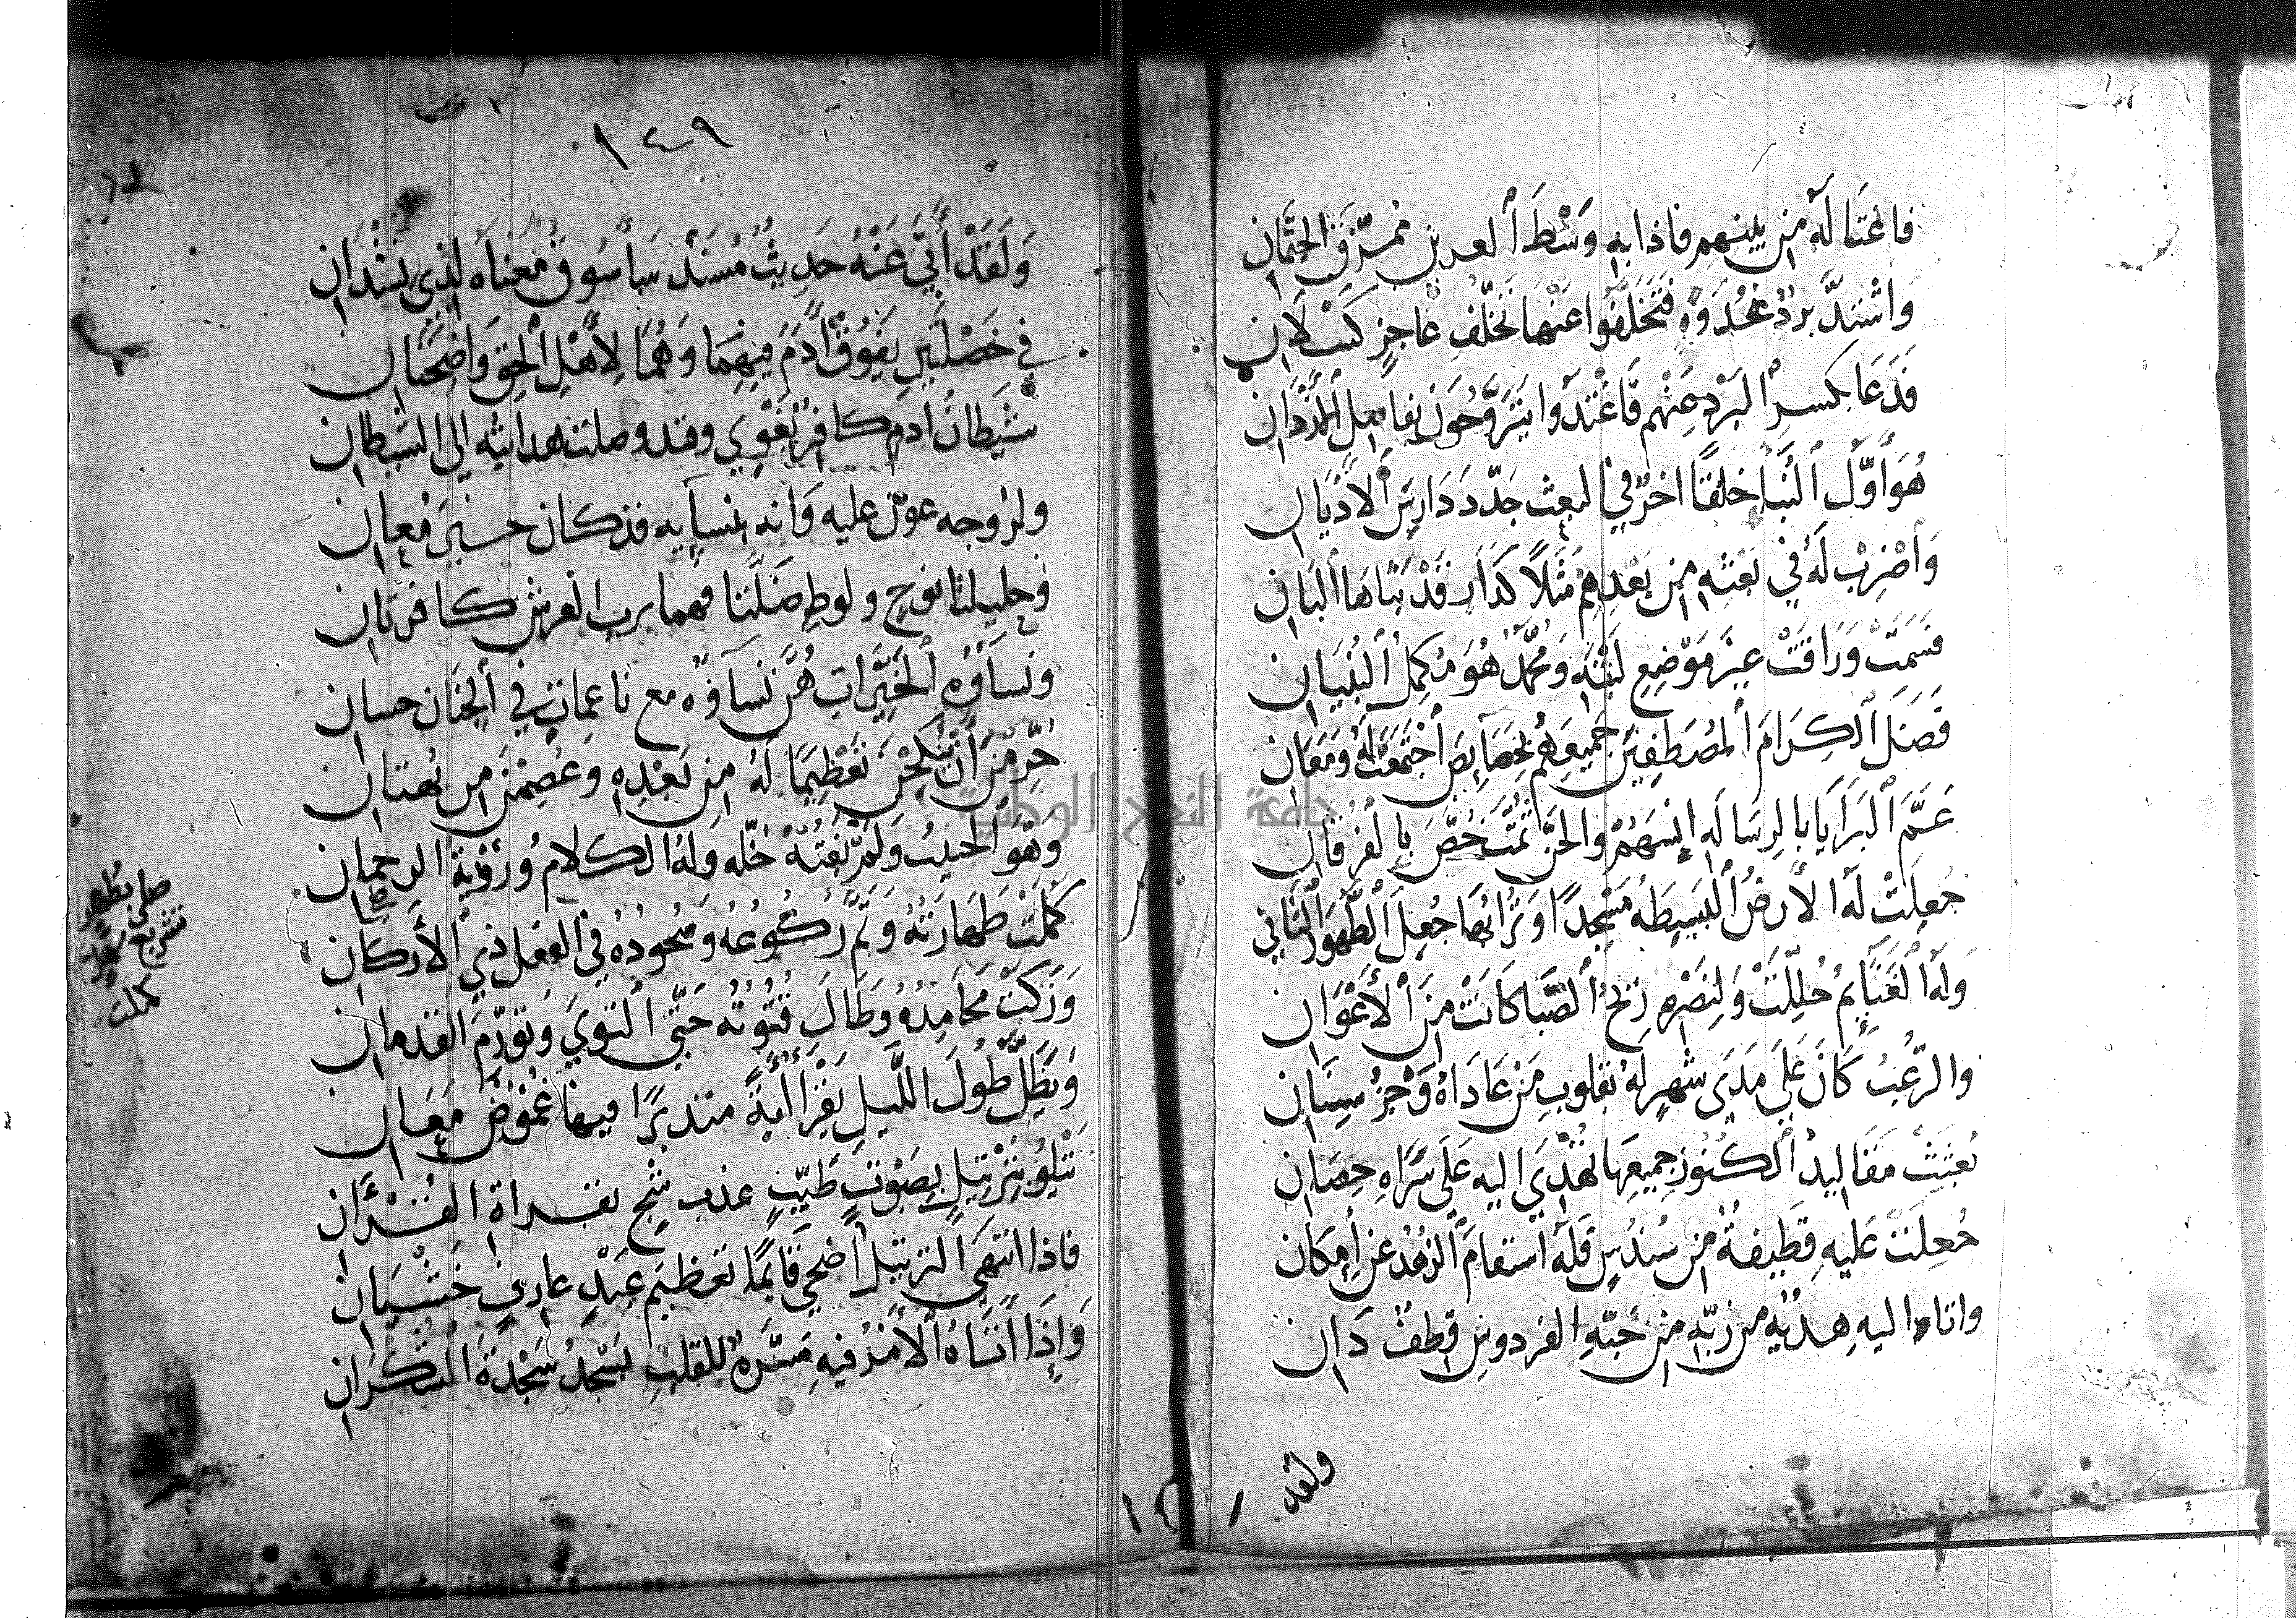 فاغتاله من بينهم فاذا به وَسْطَ العدين ممزق الجثمان
وَاشْتدَّ بردُ غُدُوِّهِ فتخلَّفُوا عَنْها تخلّفِ عاجزٍ كسْلانِ
فَدَعَا بكسرِ البَرْدِ عنْهم فَاغْتدَوا يتروَّحُونَ بفاعل المَدَدان
هُوَ أَوَّلُ النُبَّاءِ خلقًا اخرٌ في البعث جدّد دَارِسَ الأدْيَانِ
وَاضْرِبْ لَهُ في بَعْثِهِ مِن بَعْدِهِم مَثَلاً كَدَارٍ قَدْ بَنَاهَا البَانِ
فَسَمَتْ وَرَاقَتْ غيرَ مَوْضِعِ لَبْنَةٍ وَمُحَمَّدٌ هُوَ مُكمِلُ البُنْيَانِ
فَضَلَ الكِرَامَ المُصْطَفِينَ جَميعَهُم بخصَايِصَ اجْتَمَعَتْ لَهُ ومَعَانِ
عَمَّ البَرَايَا بالرِسَالَهِ إنسَهُمْ والجِنَّ ثمَّتَ خُصَّ بالفُرقَانِ
جُعِلَتْ لَهُ الأَرضُ البَسِيطَهُ مَسْجِدًا وَتُرَابُهَا جُعِلَ الطَّهُورَ الثَّاني
وَلَهُ الغَنَايِمُ حُلِّلَتْ وَلِنَصْرِهِ رِيحُ الصَّبَا كَانَتْ مِنَ الأَعْوَانِ
والرّعْبُ كَانَ عَلَى مَدَى شَهْرٍ لَهُ بقلوبِ مَنْ عَادَاهُ وَخْزُ سِنَانِ
بُعِثَتْ مَقَاليدُ الكُنُوزِ جَمِيعِهَا تُهْدَى اليه عَلَى سَرَاهِ حِصَانِ
جُعِلَتْ عَليهِ قَطِيفةٌ مِن سُنْدُسٍ فَلَهُ استقامَ الزهْدُ عن إِمكَان
واتاه اليهِ هديّه من ربّهِ من جنّهِ الفردوسِ قطفٌ دَانِ
ولقد
١٤٩
وَلَقَدْ أَتَى عَنْهُ حَدِيثٌ مُسْنَدٌ سَأَسُوقُ مَعناهُ لِذِي نشْدَانِ
في خَصْلتَينِ يَفُوقُ آدَمَ فِيهِمَا وَهُمَا لِأهْلِ الحقِ وَاضِحَتَانِ
شَيطَانُ ادم كافرٌ يُغوِي وقد وصلت هدايتُه الى الشيطانِ
ولزوجه عَوْنٌ عليه وَانه بنسآيه قد كان حسنَ مُعانِ
وَحليلتا نوحٍ ولوطٍ ضَلّتَا فهما بربِ العرشِ كافرتَانِ
ونسَاؤُه الخَيِّرَاتِ هُنَّ نسَاؤه مع ناعماتٍ في الجِنَانِ حسانِ
حُرّمْنَ أَنْ يُنْكَحْنَ تَعْظِيمًا لَهُ مِن بَعْدِهِ وَعُصِمْنَ مِن بُهتانِ
وَهُوَ الحَبِيبُ وَلَمْ تَفُتْهُ خُلّه وَلَهُ الكلامُ وَرُؤْيَةُ الرحمانِ
كَمُلَتْ طَهَارَتُهُ وَتَمَّ رُكُوعُهُ وَسُجُودُهُ في الفعل ذي الأَركَانِ
وَزَكَتْ مَحَامِدُهُ وَطَالَ قُنُوتُهُ حَتّى التَوى وَتَورَّمَ القدمانِ
وَيَظَلُّ طُولَ اللّيلِ يَقْرَأُ آيَةً متدبرًا فيها غُمُوضَ مَعَانِ
يَتْلُو بِتَرْتِيلٍ بِصَوْتٍ طَيّبٍ عذبٍ شَجٍ بقراة القُرْآنِ
فاذا انتَهَى الترتيلُ أضحى قَايمًا تعظيم عَبْدٍ عارفٍ خَشْيَانِ
وَإِذَا اتَاهُ الأمْرُ فيهِ مَسَرّهٌ للقلبِ يَسْجُدُ سَجْدَةَ الشكْرَانِ
كملت